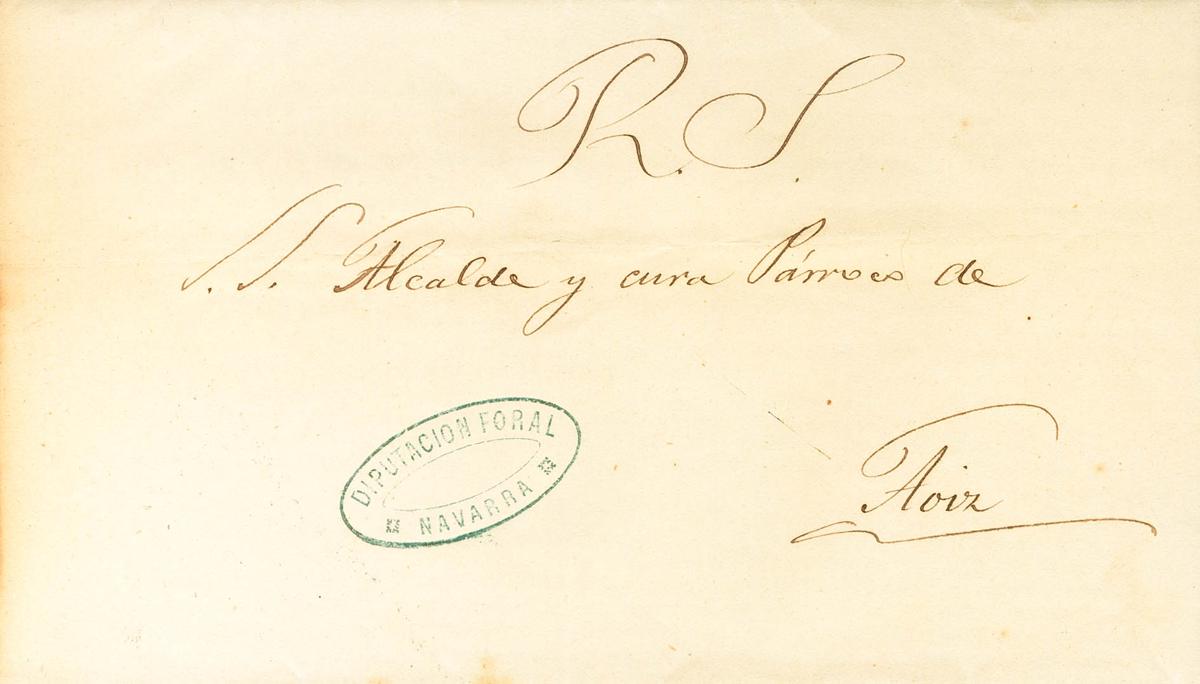 R. S.
S. S. Alcalde y cura Párroco de
DIPUTACION FORAL
NAVARRA
Aoiz